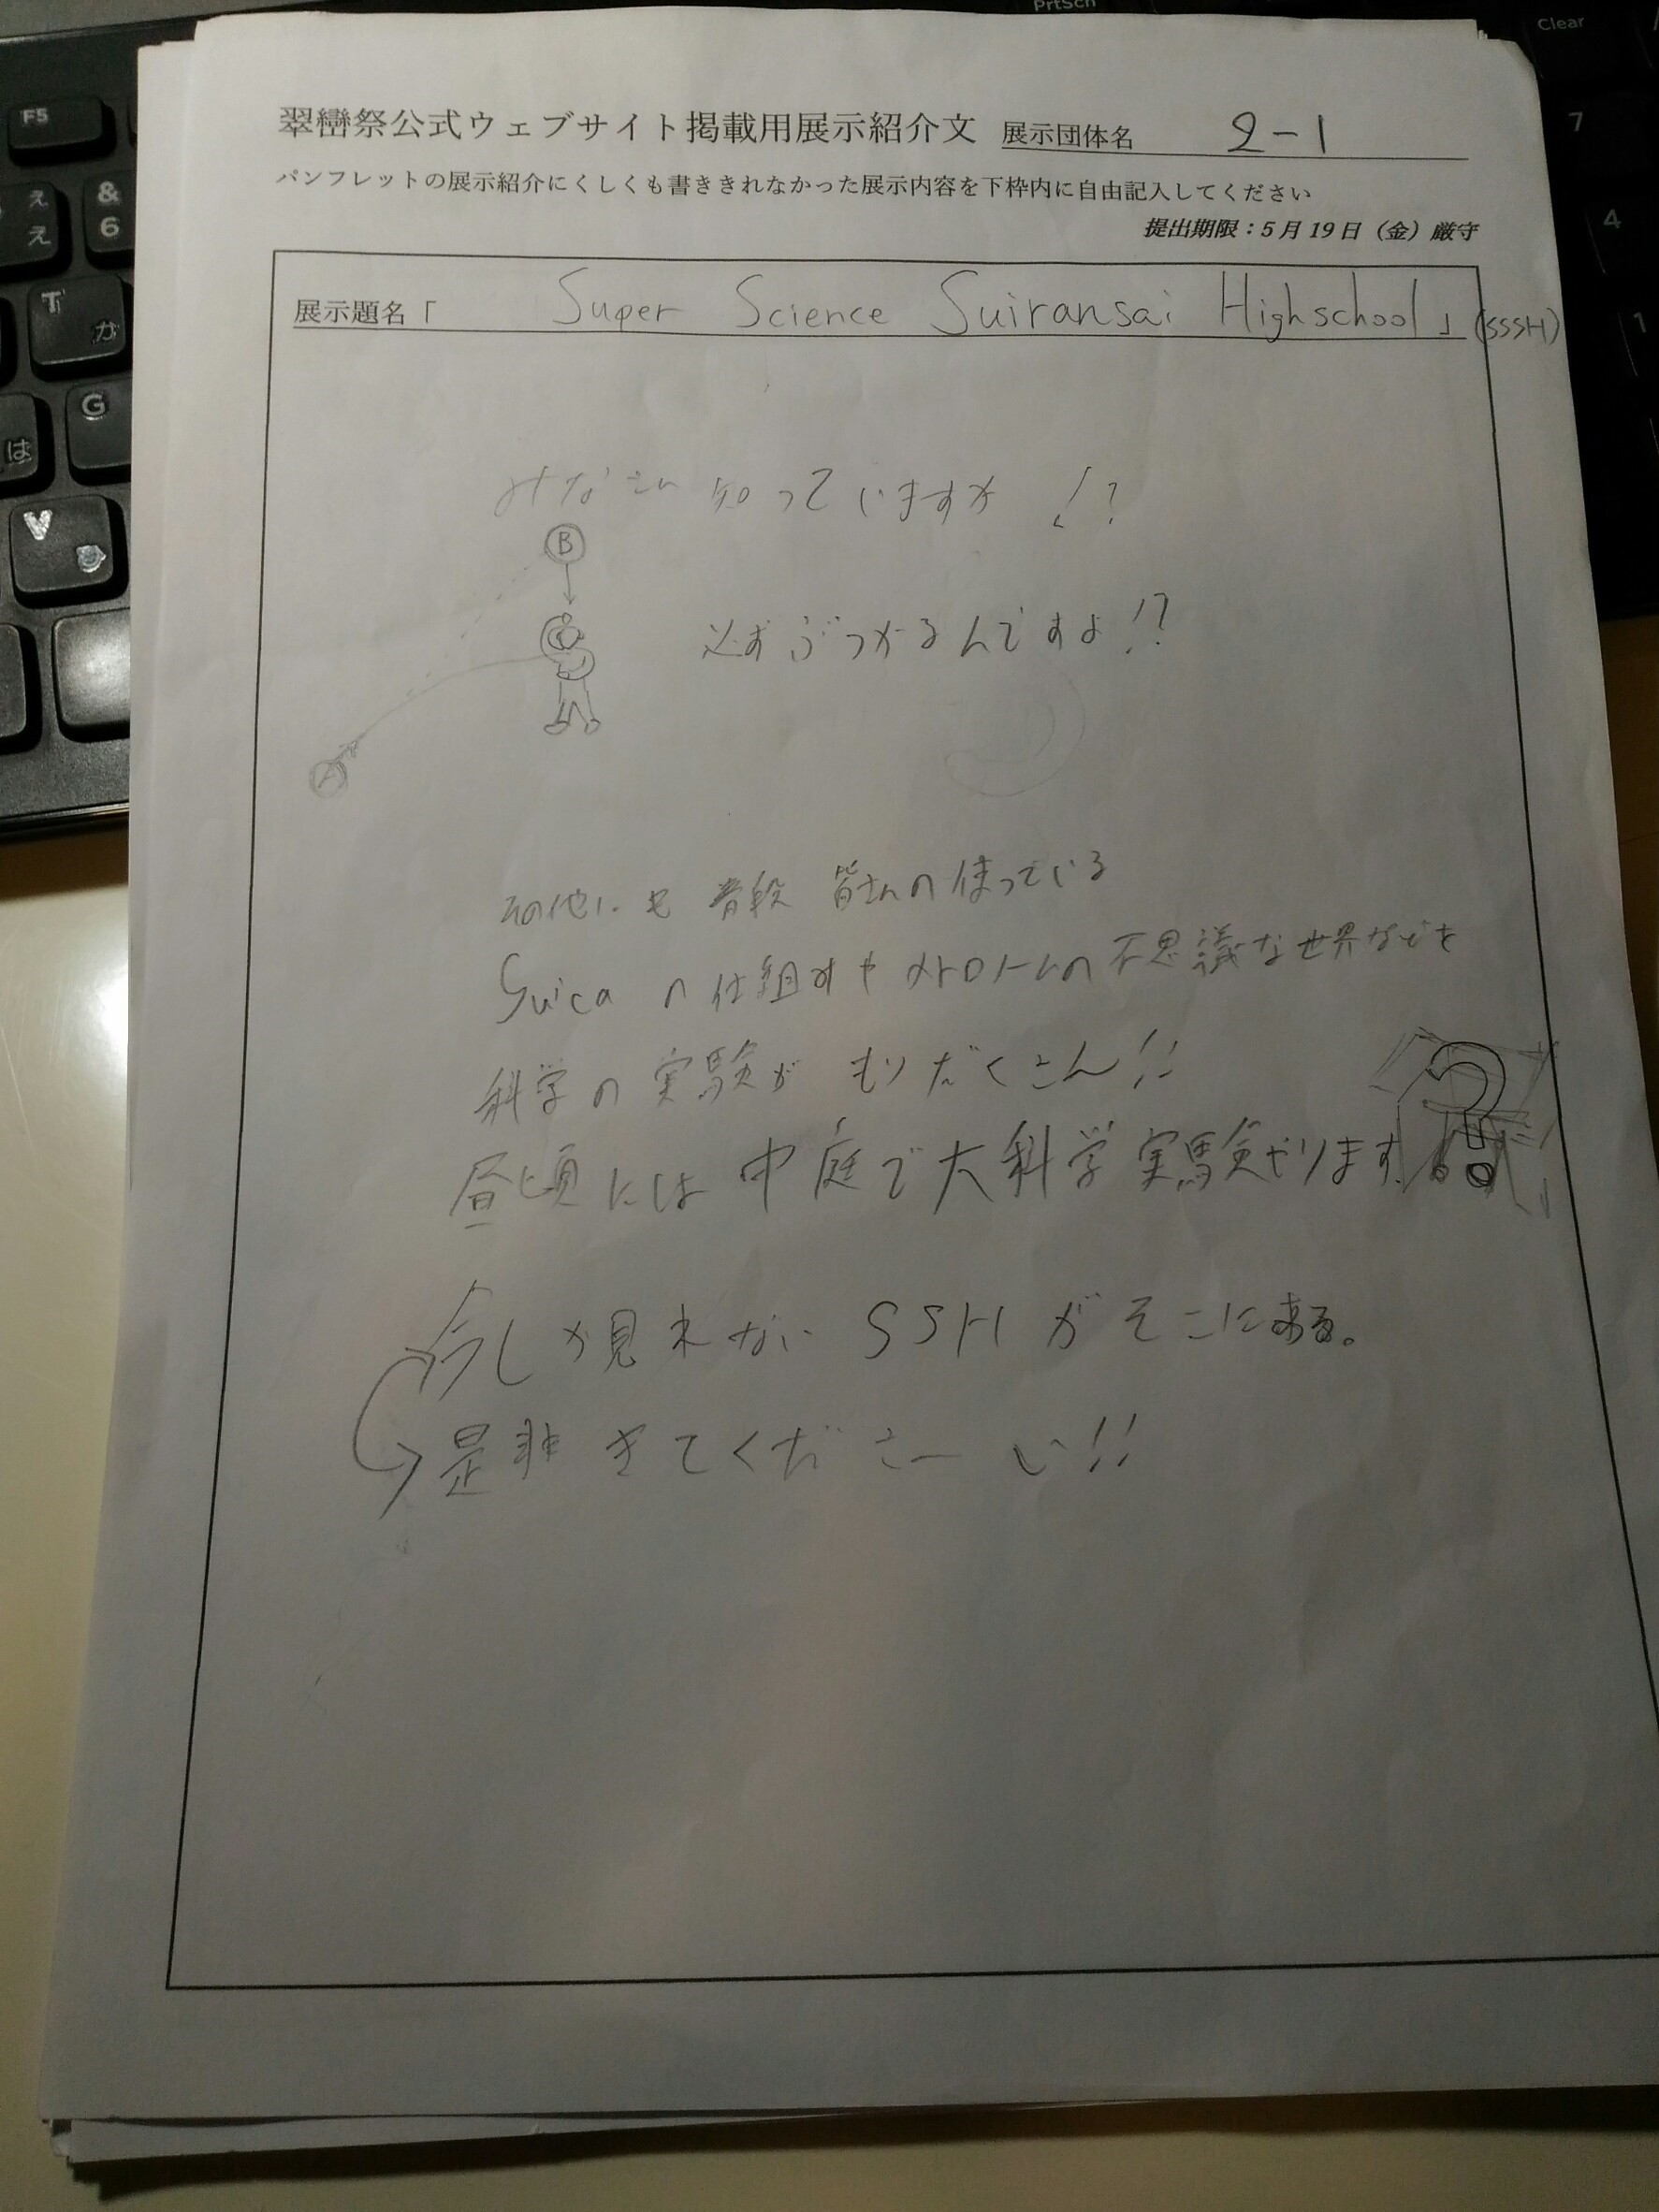 翠巒祭公式ウェブサイト掲載用展示紹介文 展示団体名 2-1
パンフレットの展示紹介にくしくも書ききれなかった展示内容を下枠内に自由記入してください
提出期限：5月19日（金）厳守
展示題名「 Super Science Suiransai Highschool 」(SSSH)
みなさん 知っていますか !?
B
必ずぶつかるんですよ!?
A
その他にも 普段 皆さんの使っている
Suica の仕組みや メトロノームの不思議な世界などを
科学の実験が もりだくさん!!
昼頃には中庭で大科学実験やります。
?
今しか見れない SSH がそこにある。
是非きてくださーい!!
PrtScn
Clear
F5
&
6
え
ぇ
T
か
G
は
V
ひ
7
4
1